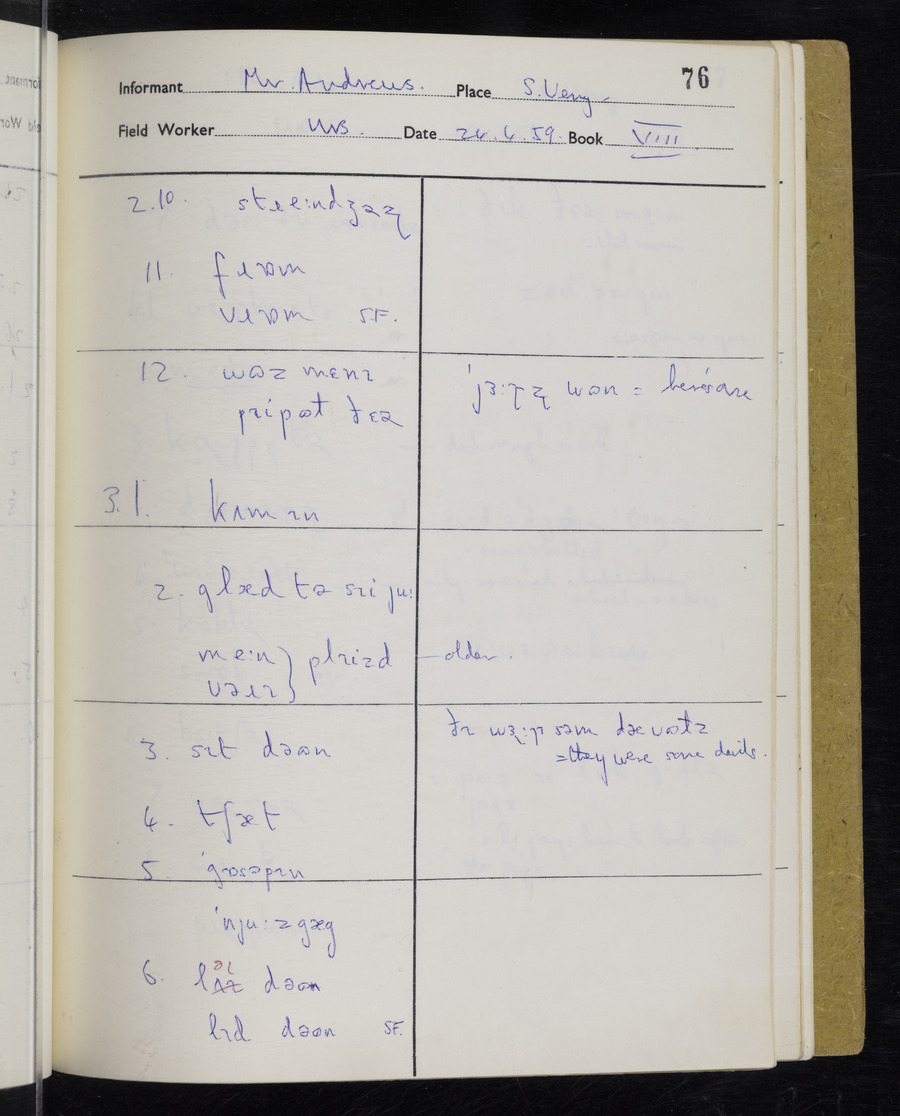 76
Informant Mr. Andrews. Place S. Very
Field Worker Date 24.4.59. Book VIII
2.10. streındʒəɻ
11. fɹɒm
vɹɒm S.F.
12. wɒz menɪ
ˈjɜːɻɻ wɒn =
pɪipʊt ðɛə
3.1. kʌmɪn
2. glæd tə sɪi juː
meːn } plɪizd — older.
vəɪɪ
3. sɪt dəʊn
ðɪ wɜːɻ səm dævʊtz
= they were some devils.
4. tʃæt
5. ˈgɒsəpɪn
ˈnjuːzgæg
6. dəʊn
lɪd dəʊn S.F.